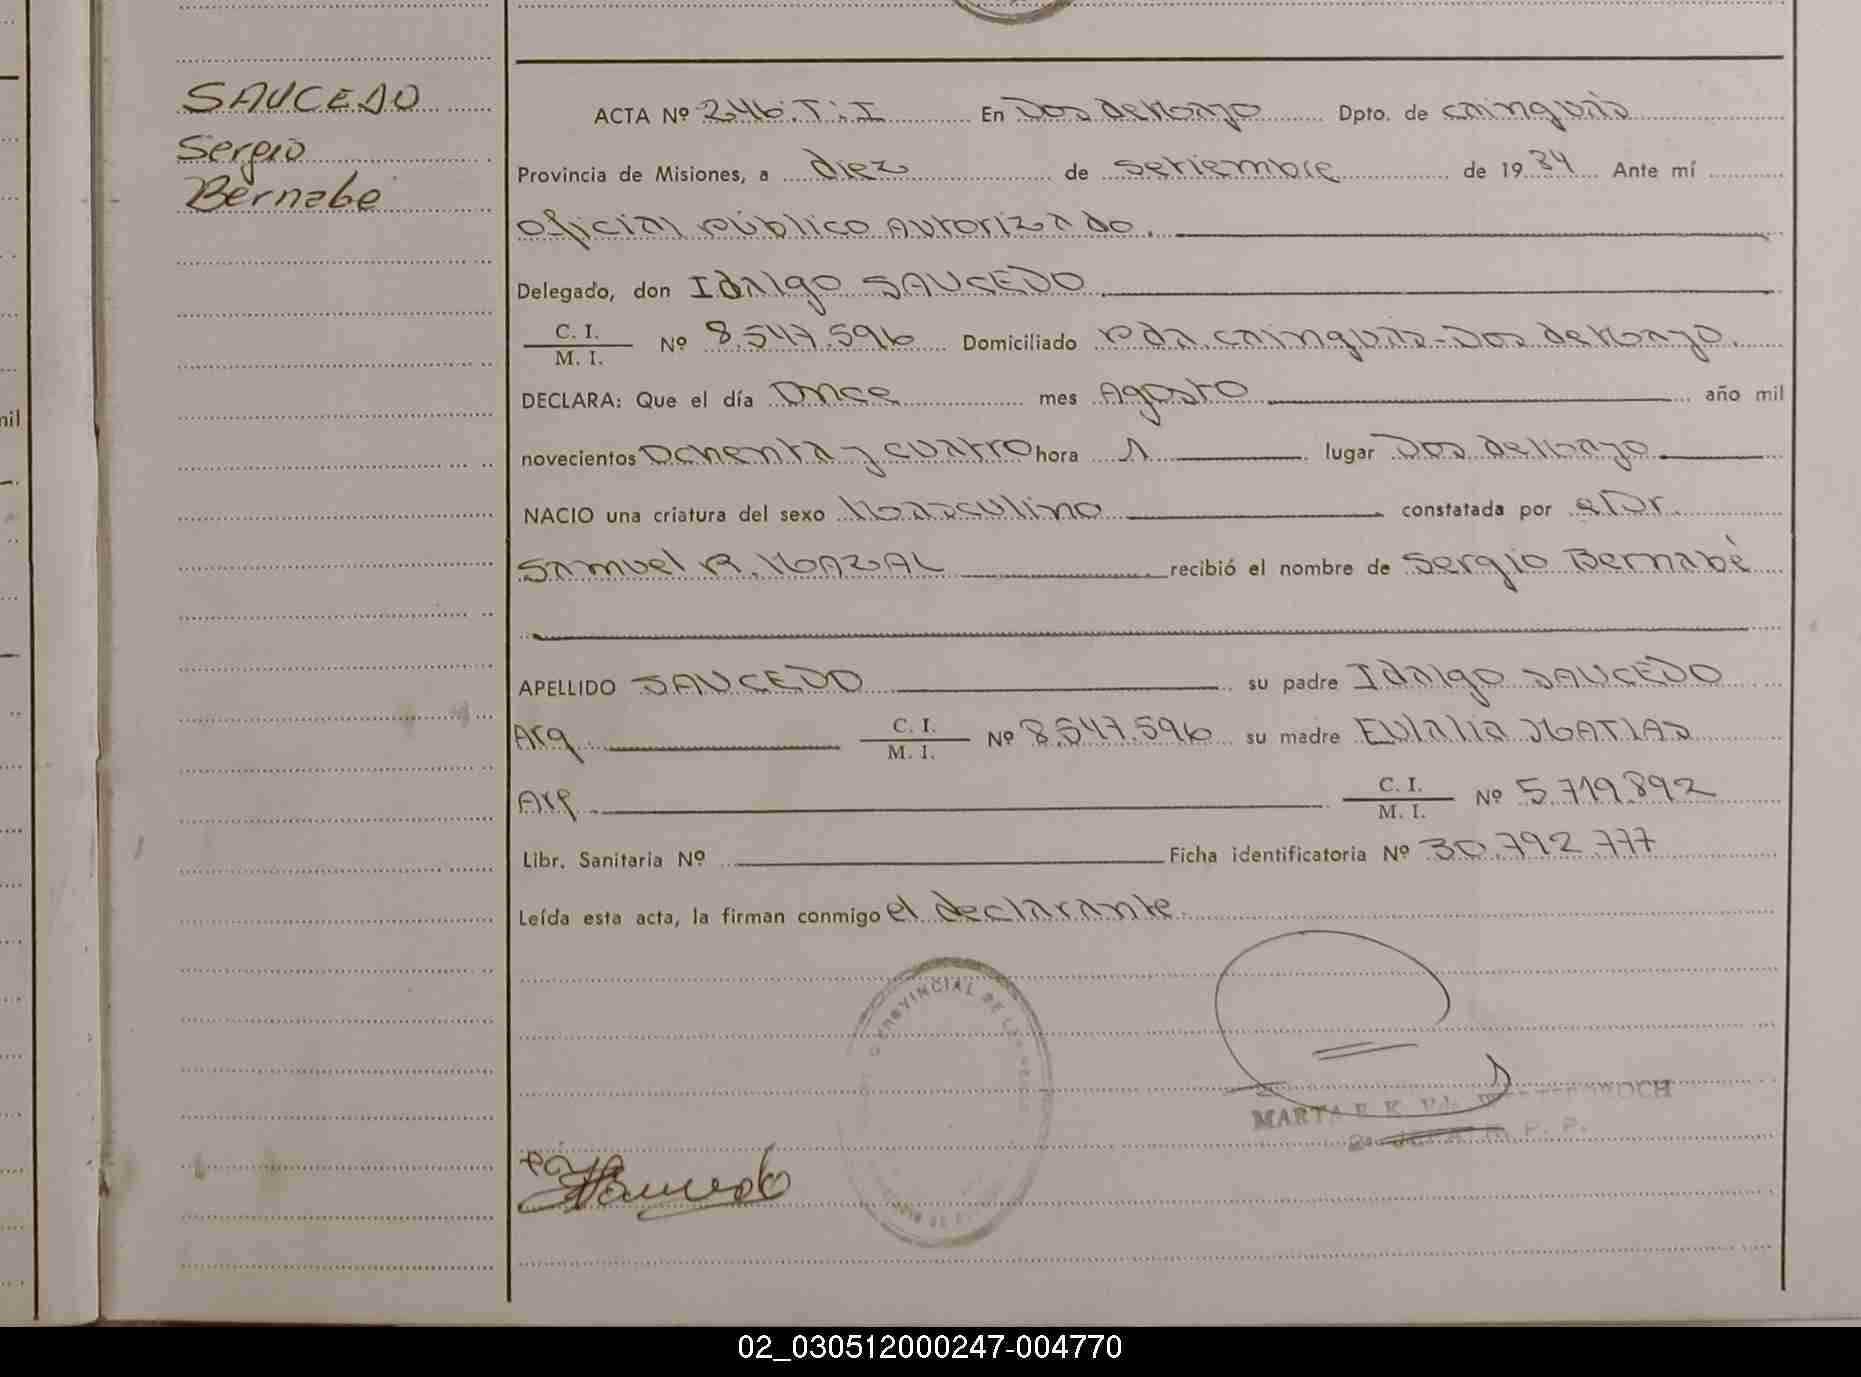 SAUCEDO
Sergio
Bernabe
ACTA Nº 246.T:I En Dos de Mayo Dpto. de Cainguás
Provincia de Misiones, a diez de setiembre de 1984 Ante mí
Oficial Público Autorizado.
Delegado, don Idalgo SAUCEDO
C. I.
M. I.
Nº 8.547.596 Domiciliado Pda. Cainguás-Dos de Mayo.
DECLARA: Que el día Once mes Agosto año mil
novecientos Ochenta y cuatro hora 1 lugar Dos de Mayo
NACIO una criatura del sexo Masculino constatada por el Dr.
Samuel R. MAZAL recibió el nombre de Sergio Bernabé
APELLIDO SAUCEDO su padre Idalgo SAUCEDO
Arg. C. I.
M. I.
Nº 8.547.596 su madre Eulalia MATIAS
Arg. C. I.
M. I.
Nº 5.719.892
Libr. Sanitaria Nº Ficha identificatoria Nº 30.792.777
Leída esta acta, la firman conmigo el declarante.
PROVINCIAL DE
MARTA
mil
02_030512000247-004770